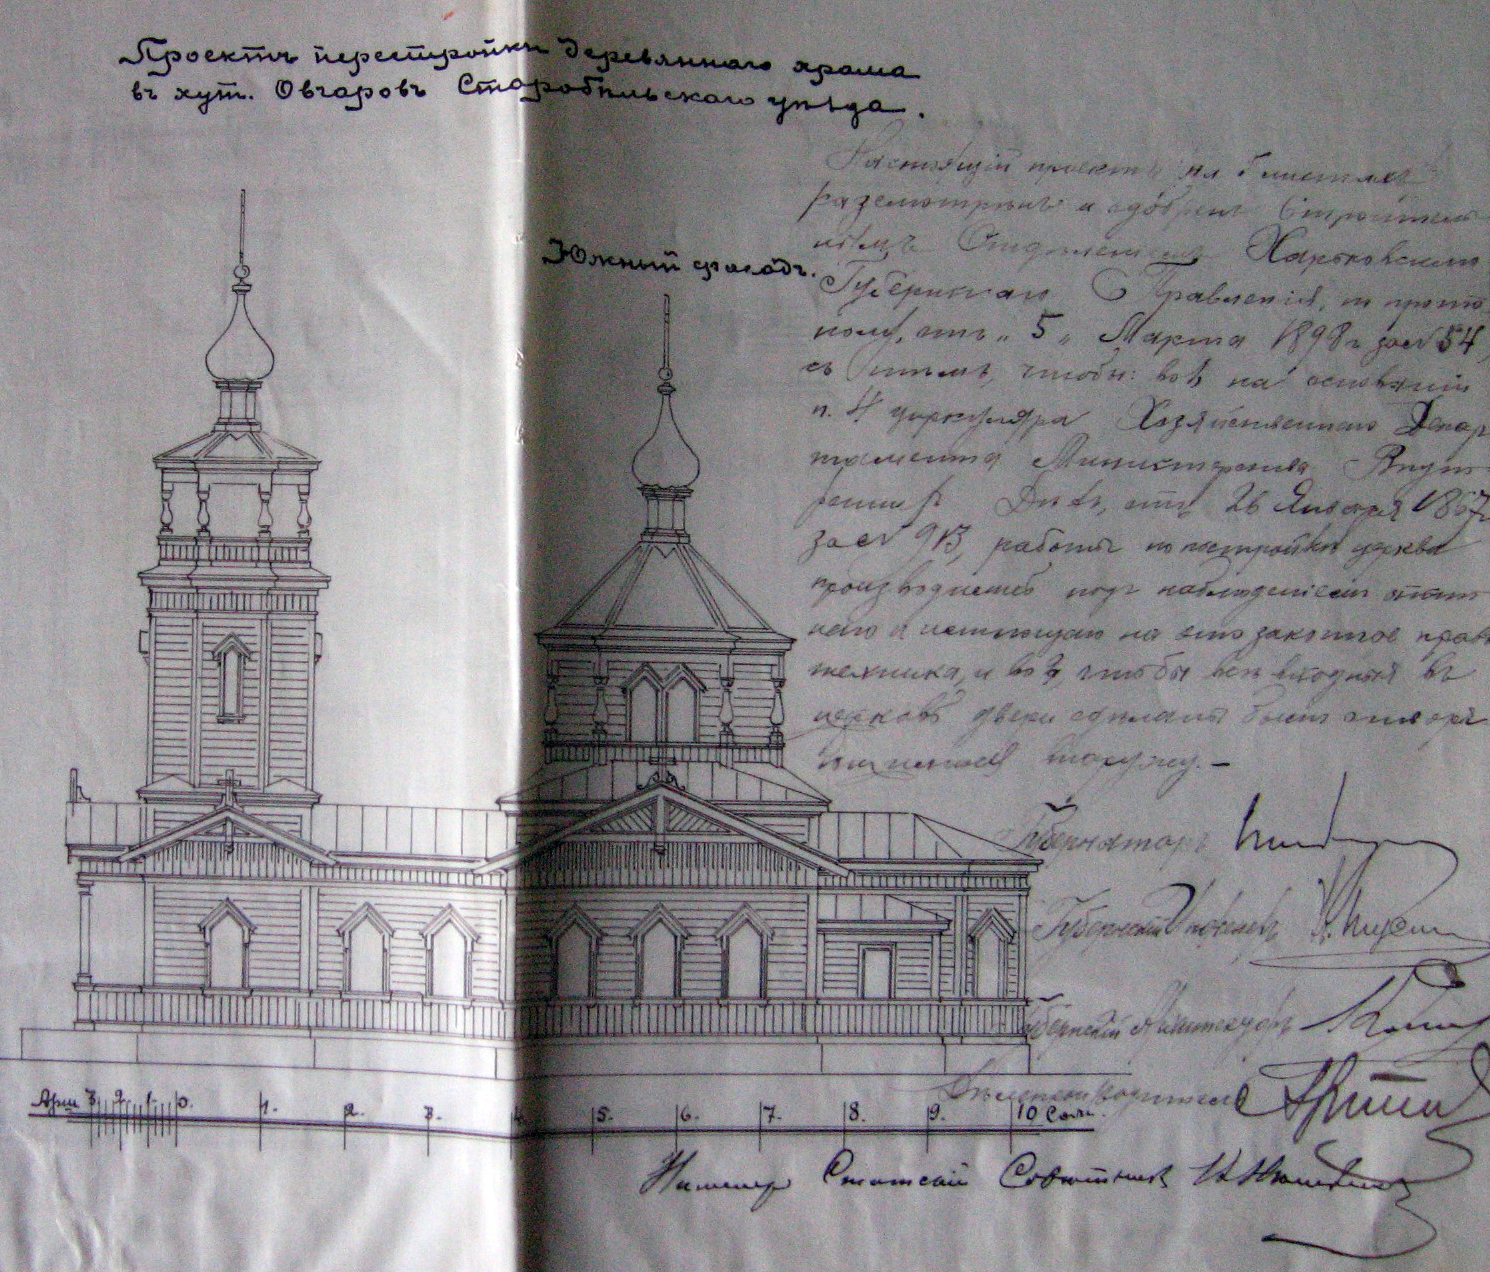 Проектъ перестройки деревяннаго храма
въ хут. Овчаровъ Старобѣльскаго уѣзда.
Южный фасадъ.
Настоящій проектъ на листахъ
разсмотрѣнъ и одобренъ Строитель-
нымъ Отдѣленіемъ Харьковскаго
Губернскаго Правленія, по прото-
колу, отъ „5„ Марта 1898 г. за № 54,
съ тѣмъ, чтобы: во 1, на основаніи
п. 4 циркуляра Хозяйственнаго Депар-
тамента Министерства Внут-
реннихъ Дѣлъ, отъ 26 Января 1867 г.
за № 913, работы по постройкѣ церкви
производились подъ наблюденіемъ опыт-
наго и имѣющаго на это законное право
техника, и во 2, чтобы всѣ входныя въ
церковь двери сдѣланы были отворя-
ющимися наружу. —
Губернаторъ
Губернскій Инженеръ
Губернскій Архитекторъ
Дѣлопроизводитель
Арш 3. 2. 1. 0. 1. 2. 3. 4. 5. 6. 7. 8. 9. 10 Саж.
Инженеръ Статскій Совѣтникъ